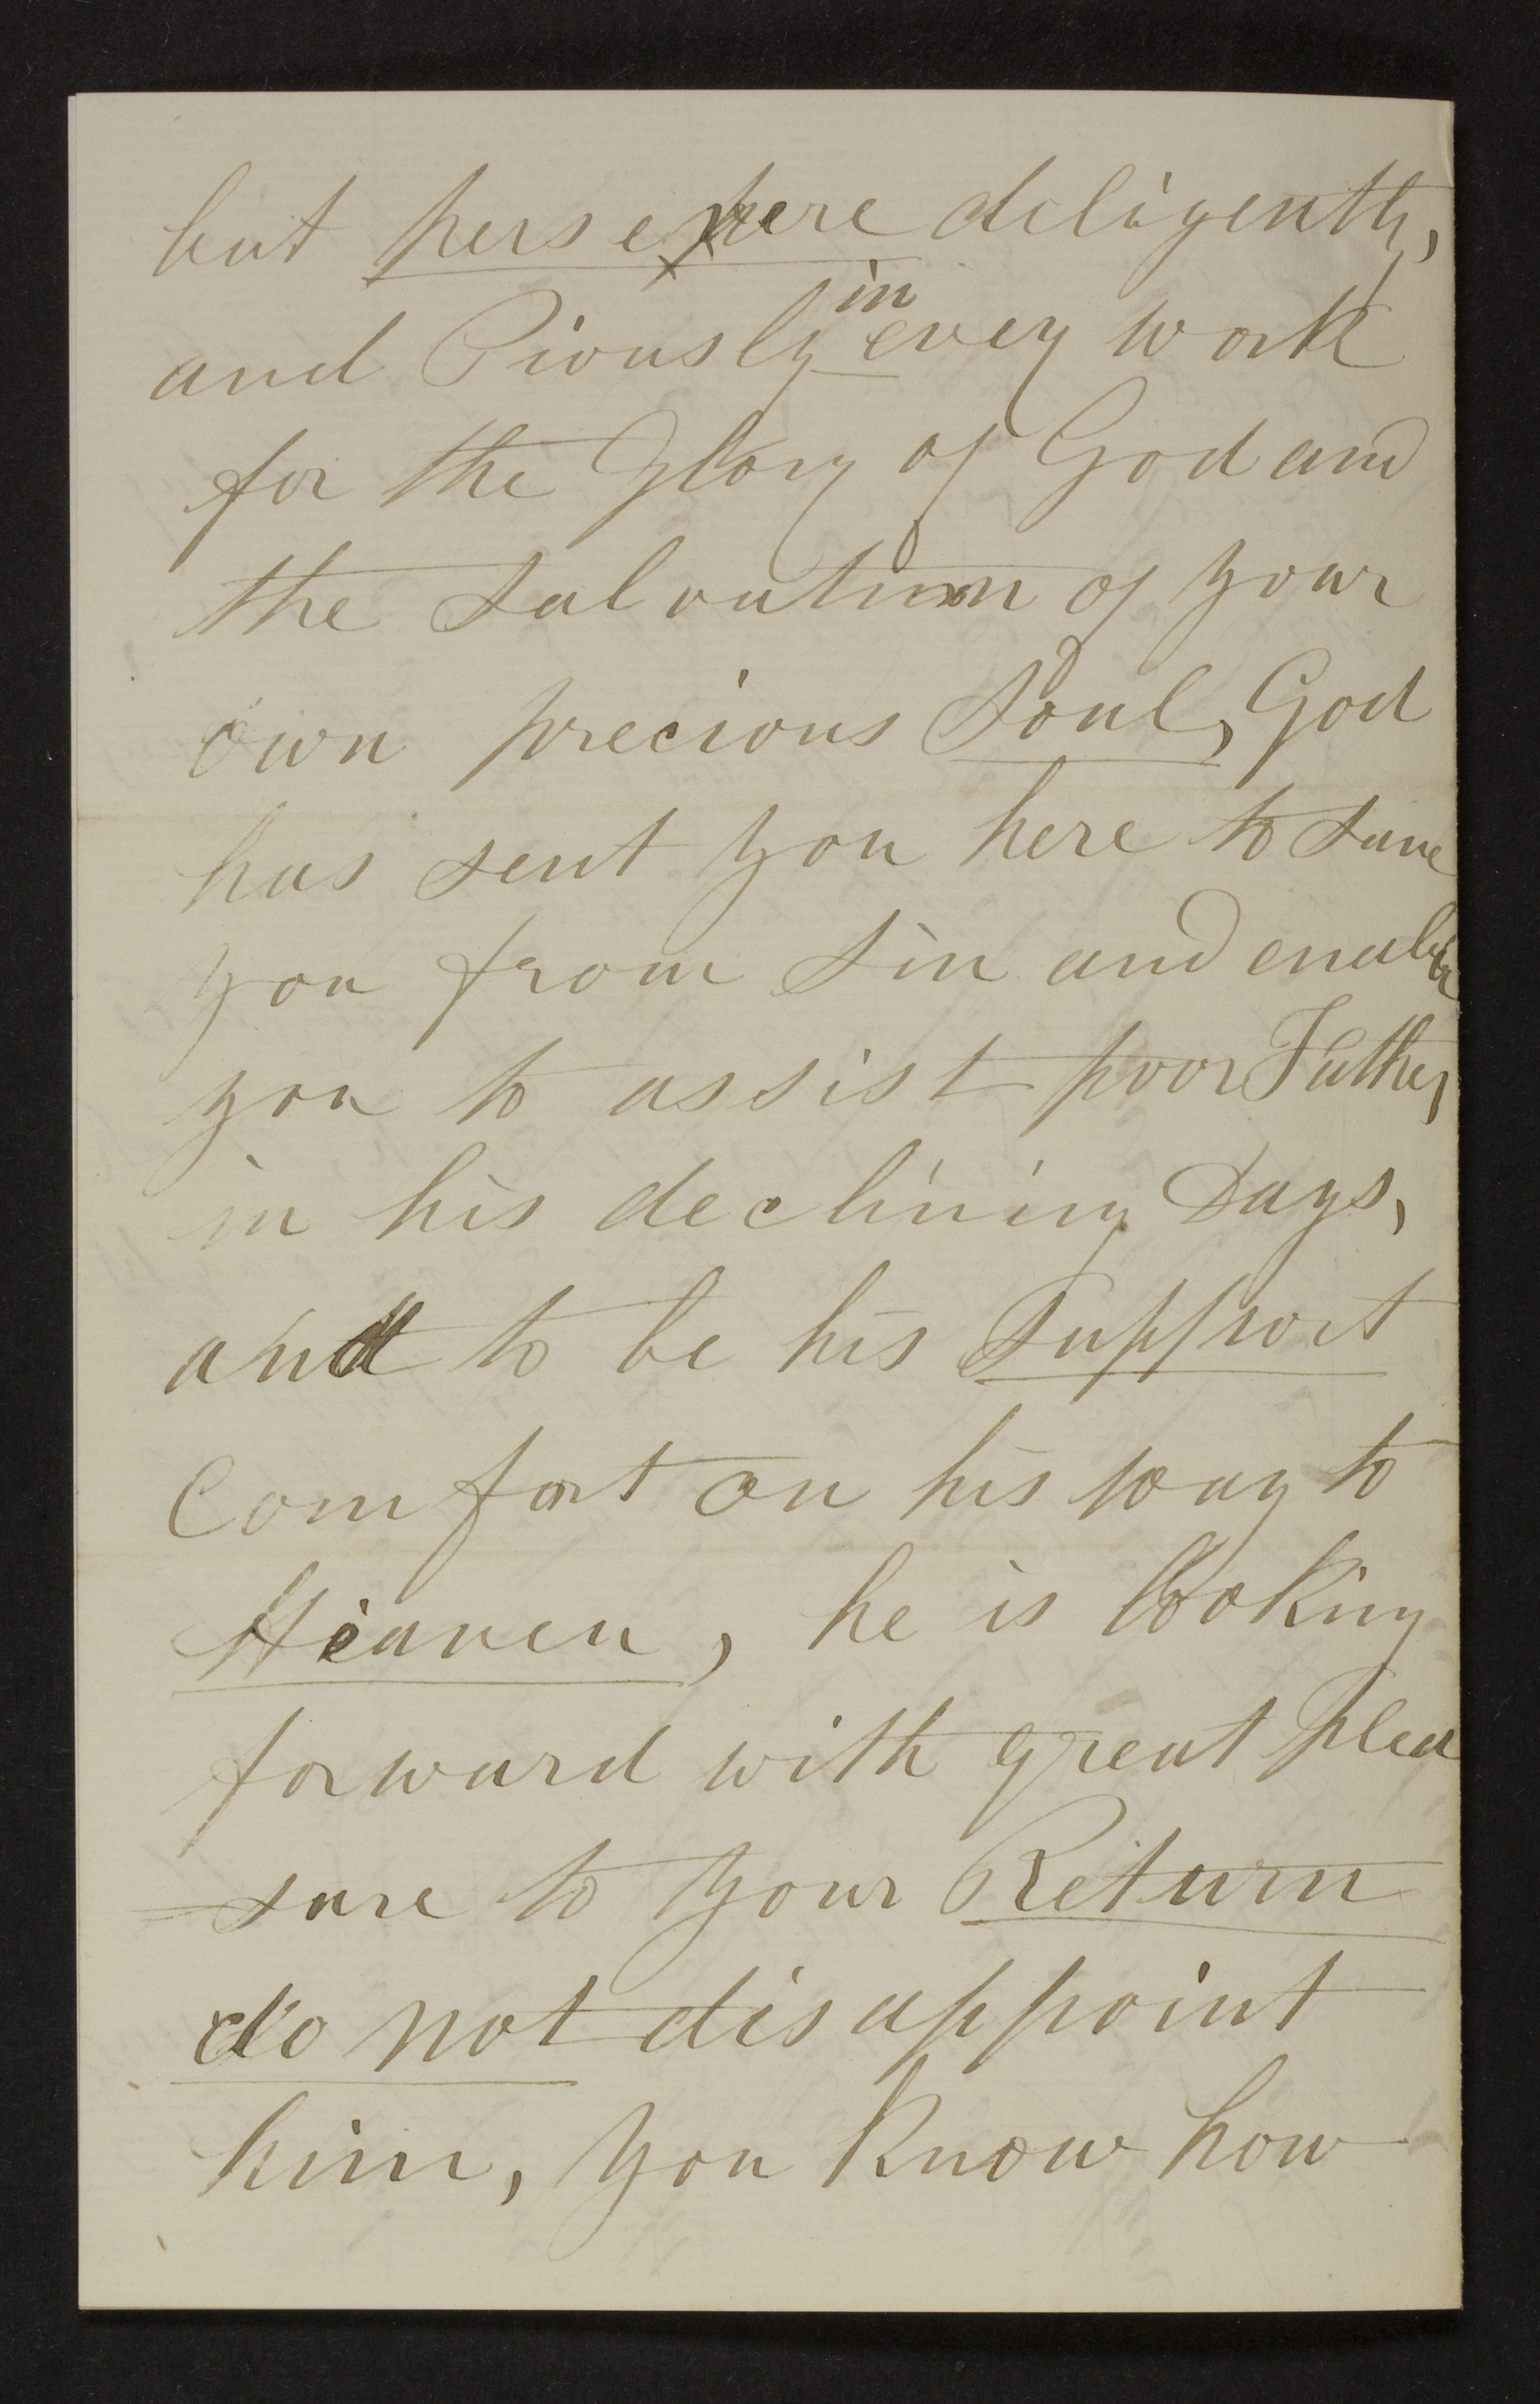 but persevere diligently,
and Piously in every work
for the Glory of God and
the Salvation of your
own precious Soul, God
has sent you here to save
you from Sin and enable
you to assist poor Father
in his declining Days,
and to be his Support
Comfort on his way to
Heaven, he is looking
forward with great Plea
sure to your Return
do not disappoint
him, you Know how